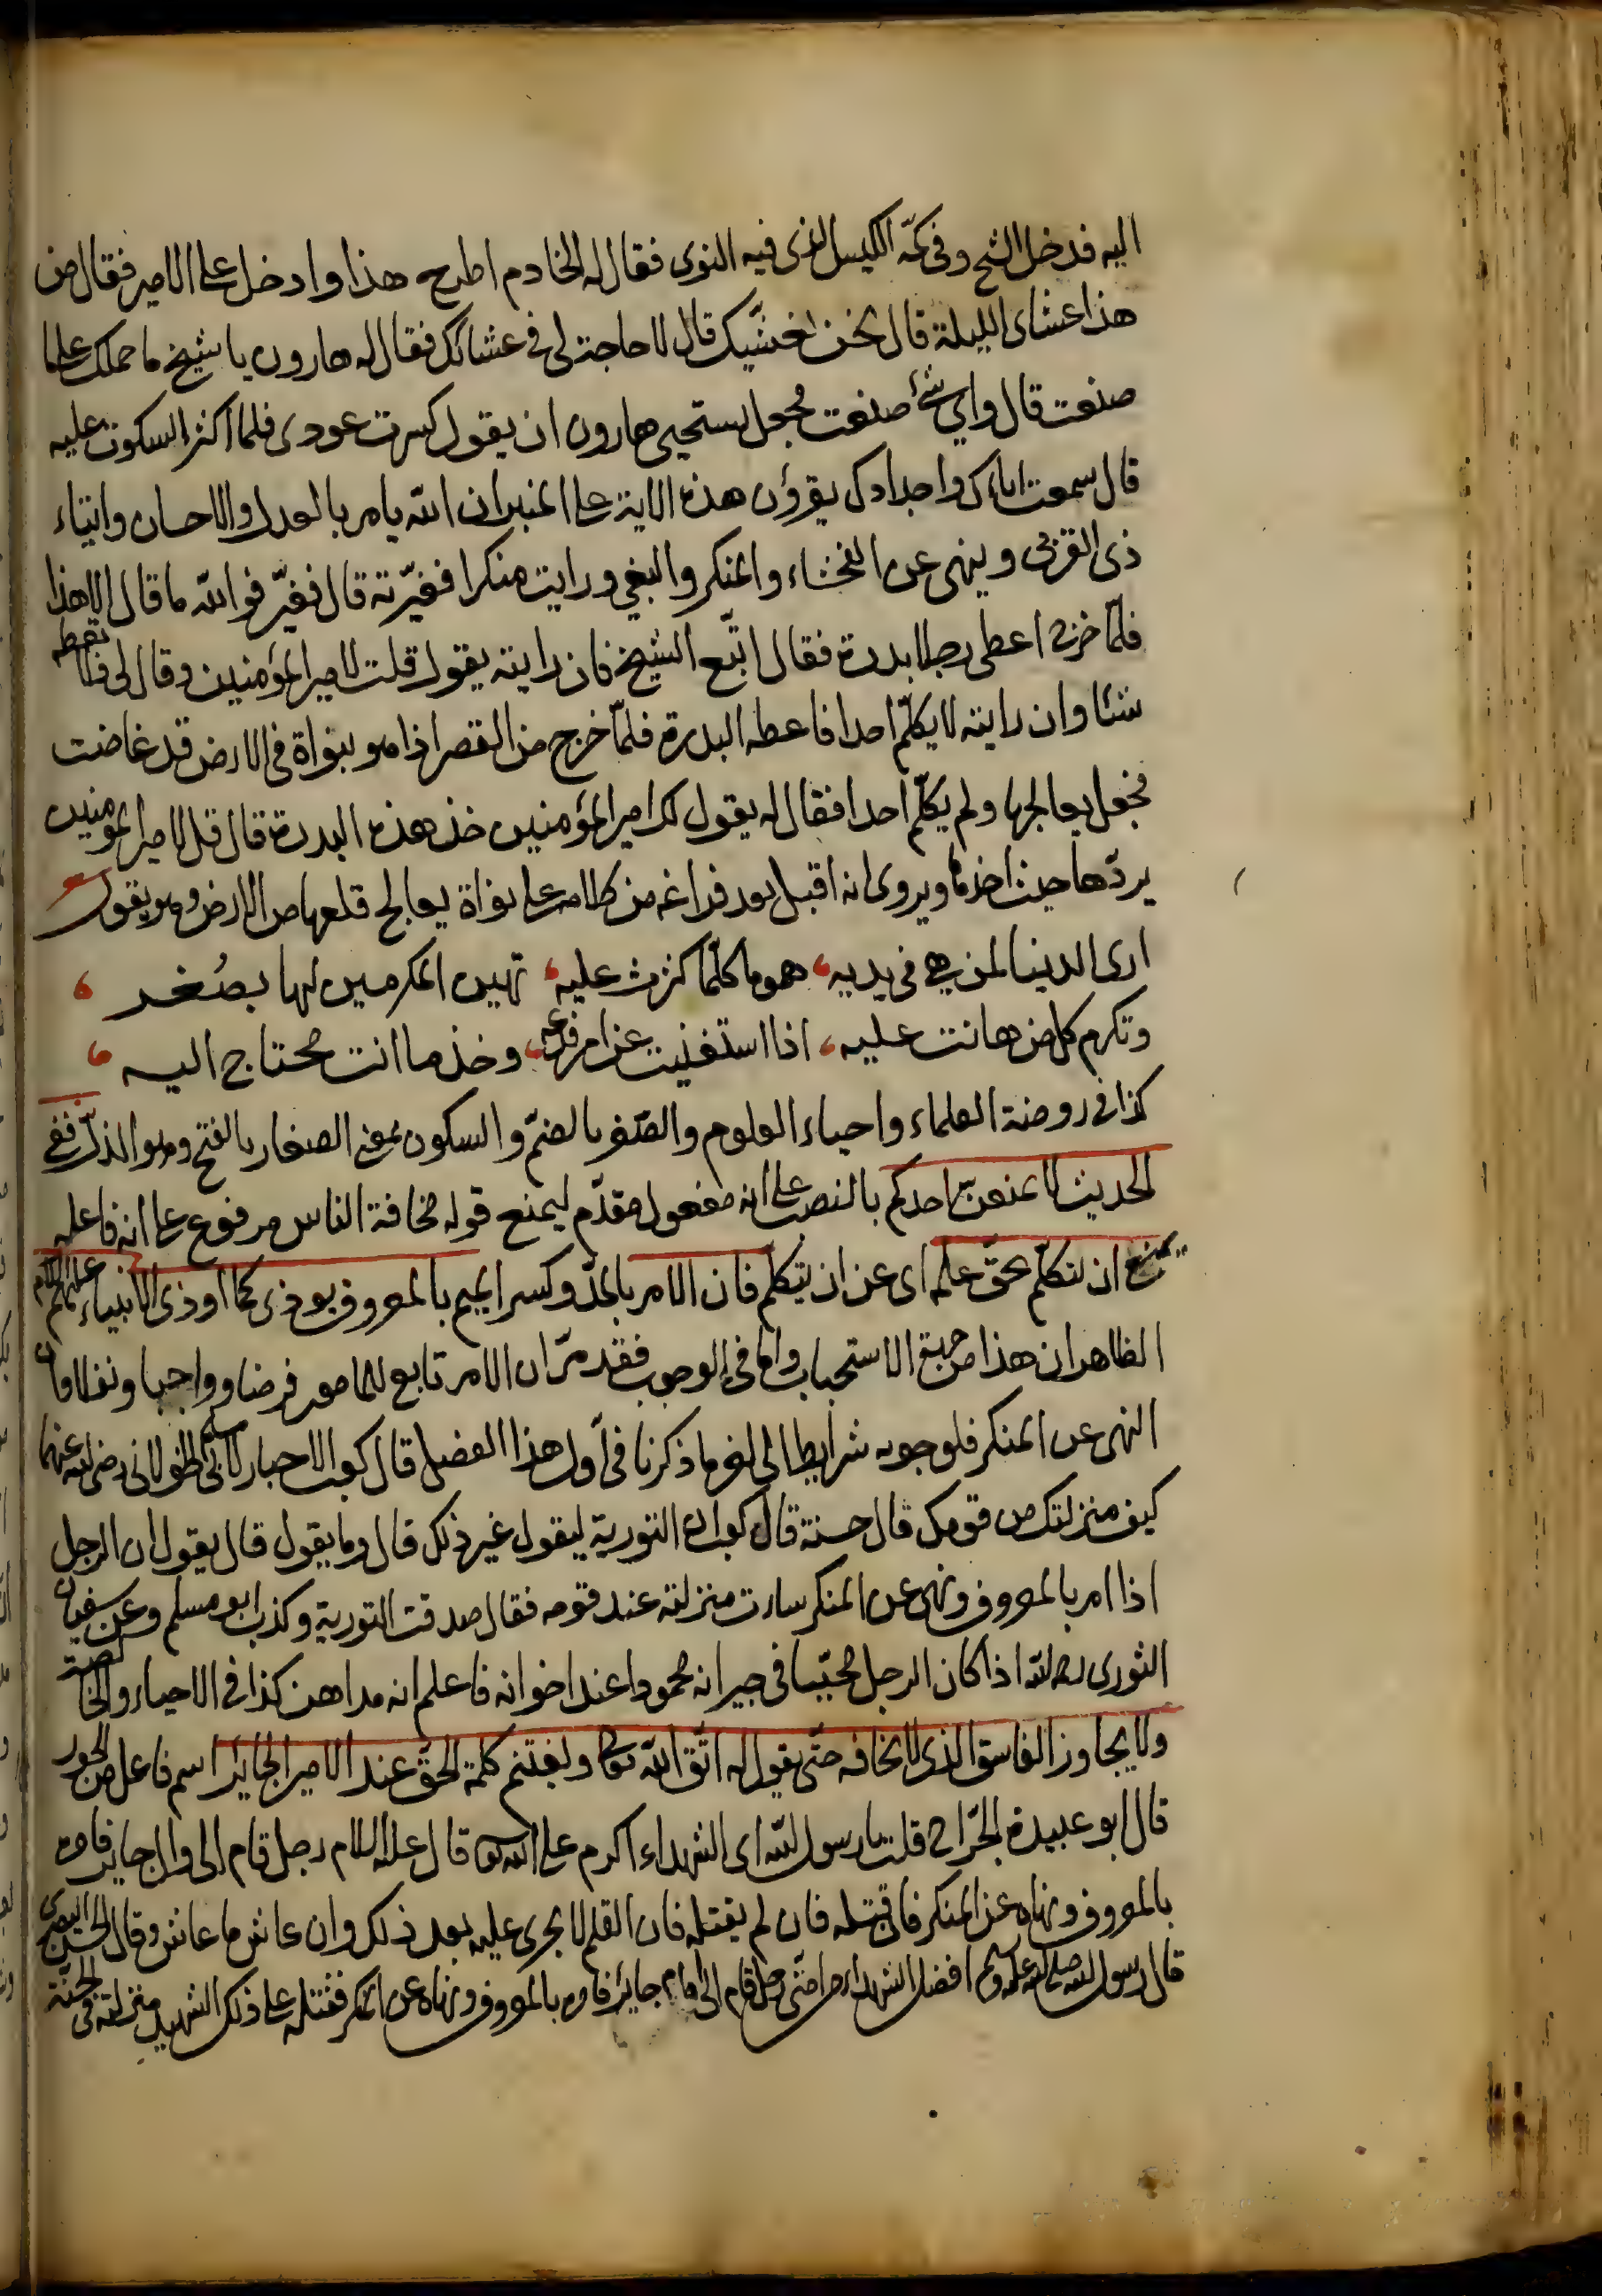 اليه فدخل الشيخ وفى كمّه الكيس الذى فيه النوى فقال له الخادم اطرح هذا وادخل على الامير فقال من
هذا عشائى الليلة قال نحن نعشيك قال لا حاجة لى فى عشائك فقال له هارون يا شيخ ما حملك على ما
صنعت قال واي شئ صنعت فجعل يستحيى هارون ان يقول كسرت عودى فلما اكثر السكوت عليه
قال سمعت اباك واجدادك يقرؤن هذه الاية على المنبر ان الله يامر بالعدل والاحسان وايتاء
ذى القربى وينهى عن الفحشاء والمنكر والبغي ورايت منكرا فغيّرته قال فغيّر فوالله ما قال الا هذا
فلمّا خرج اعطى رجلا بدرة فقال اتّبع الشيخ فان رايته يقول قلت لامير المؤمنين وقال لى فلا تعطه
شئا وان رايته لا يكلّم احدا فاعطه البدرة فلمّا خرج من القصر اذا هو بنواة فى الارض قد غاضت
فجعل يعالجها ولم يكلّم احدا فقال له يقول لك امير المؤمنين خذ هذه البدرة قال قل لامير المؤمنين
يردّها حيث اخذها ويروى انه اقبل بعد فراغه من كلامه على نواة يعالج قلعها من الارض وهو يقول
ارى الدنيا لمن هي فى يديه، هموما كلّما كثرت عليه، تهين المكرمين لها بصُغر،
وتكرم كل من هانت عليه، اذا استغنيت عن امر فدعه، وخذ ما انت محتاج اليه،
كذا فى روضة العلماء واحياء العلوم والصّغر بالضمّ والسكون بمعنى الصغار بالفتح وهو الذلّ ففى
الحديث لا يمنعنّ احدكم بالنصب على انه مفعول مقدّم ليمنع قوله مخافة الناس مرفوع على انه فاعله
ان يتكلّم بحقّ علمه اى عن ان يتكلم فان الامر بالمدّ وكسر الميم بالمعروف يوذى كما اوذى الانبياء عليهم السلام
الظاهر ان هذا من حيث الاستحباب واما فى الوجوب فقد مرّ ان الامر تابع للمامور فرضا وواجبا ونفلا واما
النهى عن المنكر فلوجوبه شرايط الى اخر ما ذكرنا فى اول هذا الفصل قال كعب الاحبار لابى مسلم الخولانى رضى الله عنهما
كيف منزلتك من قومك قال حسنة قال كعب ان التورية ليقول غير ذلك قال وما يقول قال يقول ان الرجل
اذا امر بالمعروف ونهى عن المنكر ساءت منزلته عند قومه فقال صدقت التورية وكذب ابو مسلم وعن سفيان
الثورى رحمه الله اذا كان الرجل محبّبا فى جيرانه محمودا عند اخوانه فاعلم انه مداهن كذا فى الاحياء والخالصة
ولا يجاوز الفاسق الذى لا يخافه حتّى يقول له اتّق الله تعالى ويغتنم كلمة الحقّ عند الامير الجائر اسم فاعل من الجور
قال ابو عبيدة الجرّاح قلت يا رسول الله اى الشهداء اكرم على الله تعالى قال عليه السلام رجل قام الى وال جاير فامره
بالمعروف ونهاه عن المنكر فان قتله فان لم يقتله فان القلم لا يجرى عليه بعد ذلك وان عاش ما عاش وقال الحسن البصرى
قال رسول الله صلى الله عليه وسلم افضل الشهداء من امّتى رجل قام الى امام جاير فامره بالمعروف ونهاه عن المنكر فقتله على ذلك الشهيد منزلته فى الجنّة